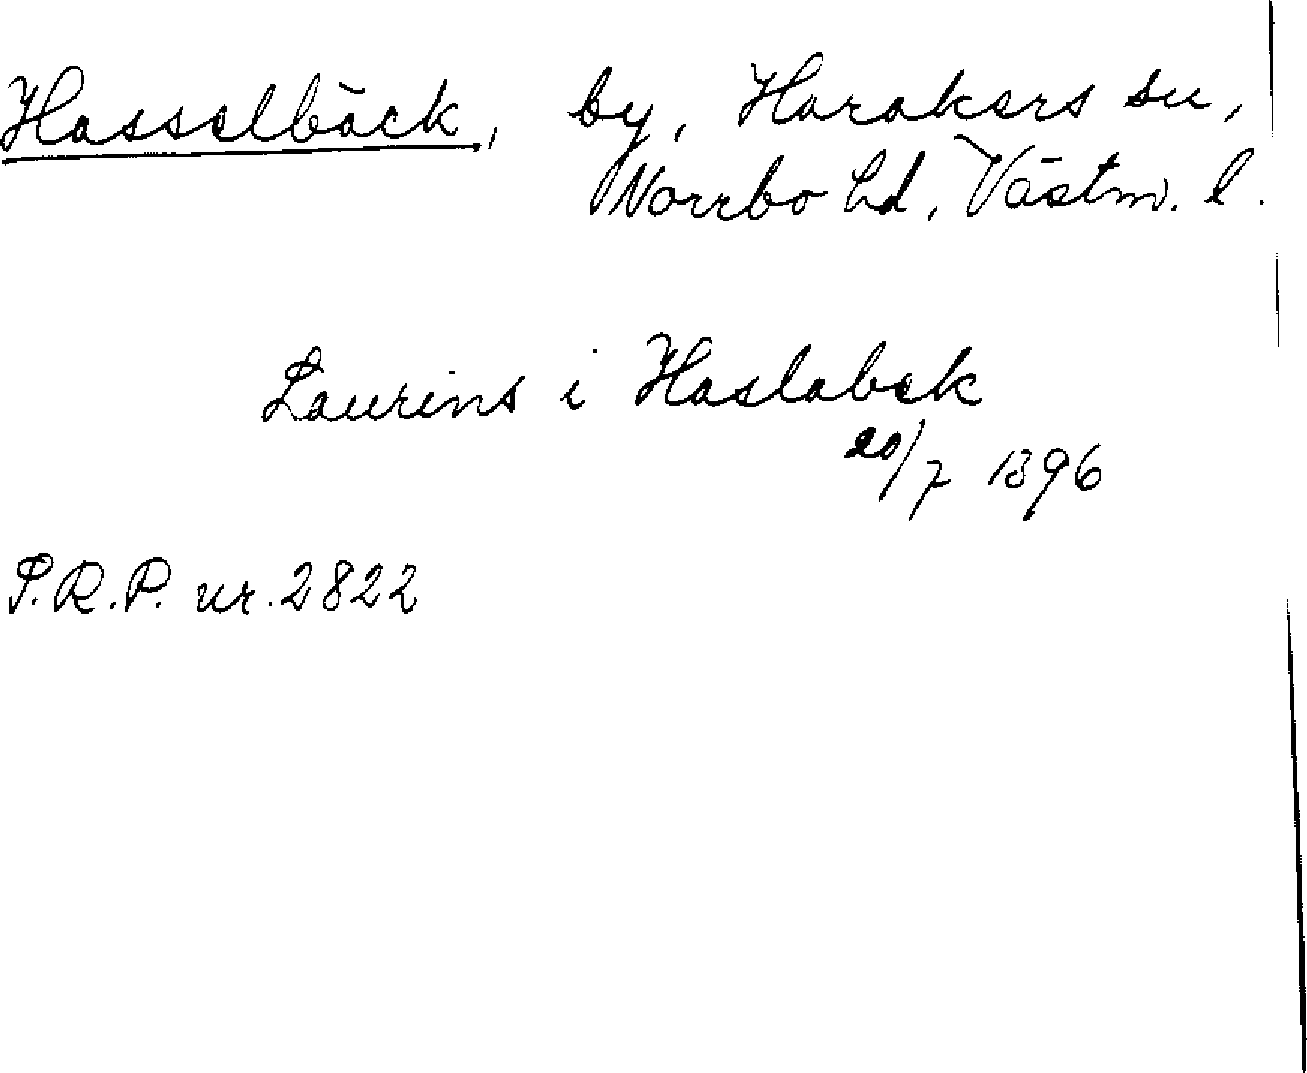 Hasselbäck, by, Harakers sn,
Norrbo hd, Västm. l.
Laurins i Haslabek
20/7 1396
S.R.P. nr. 2822